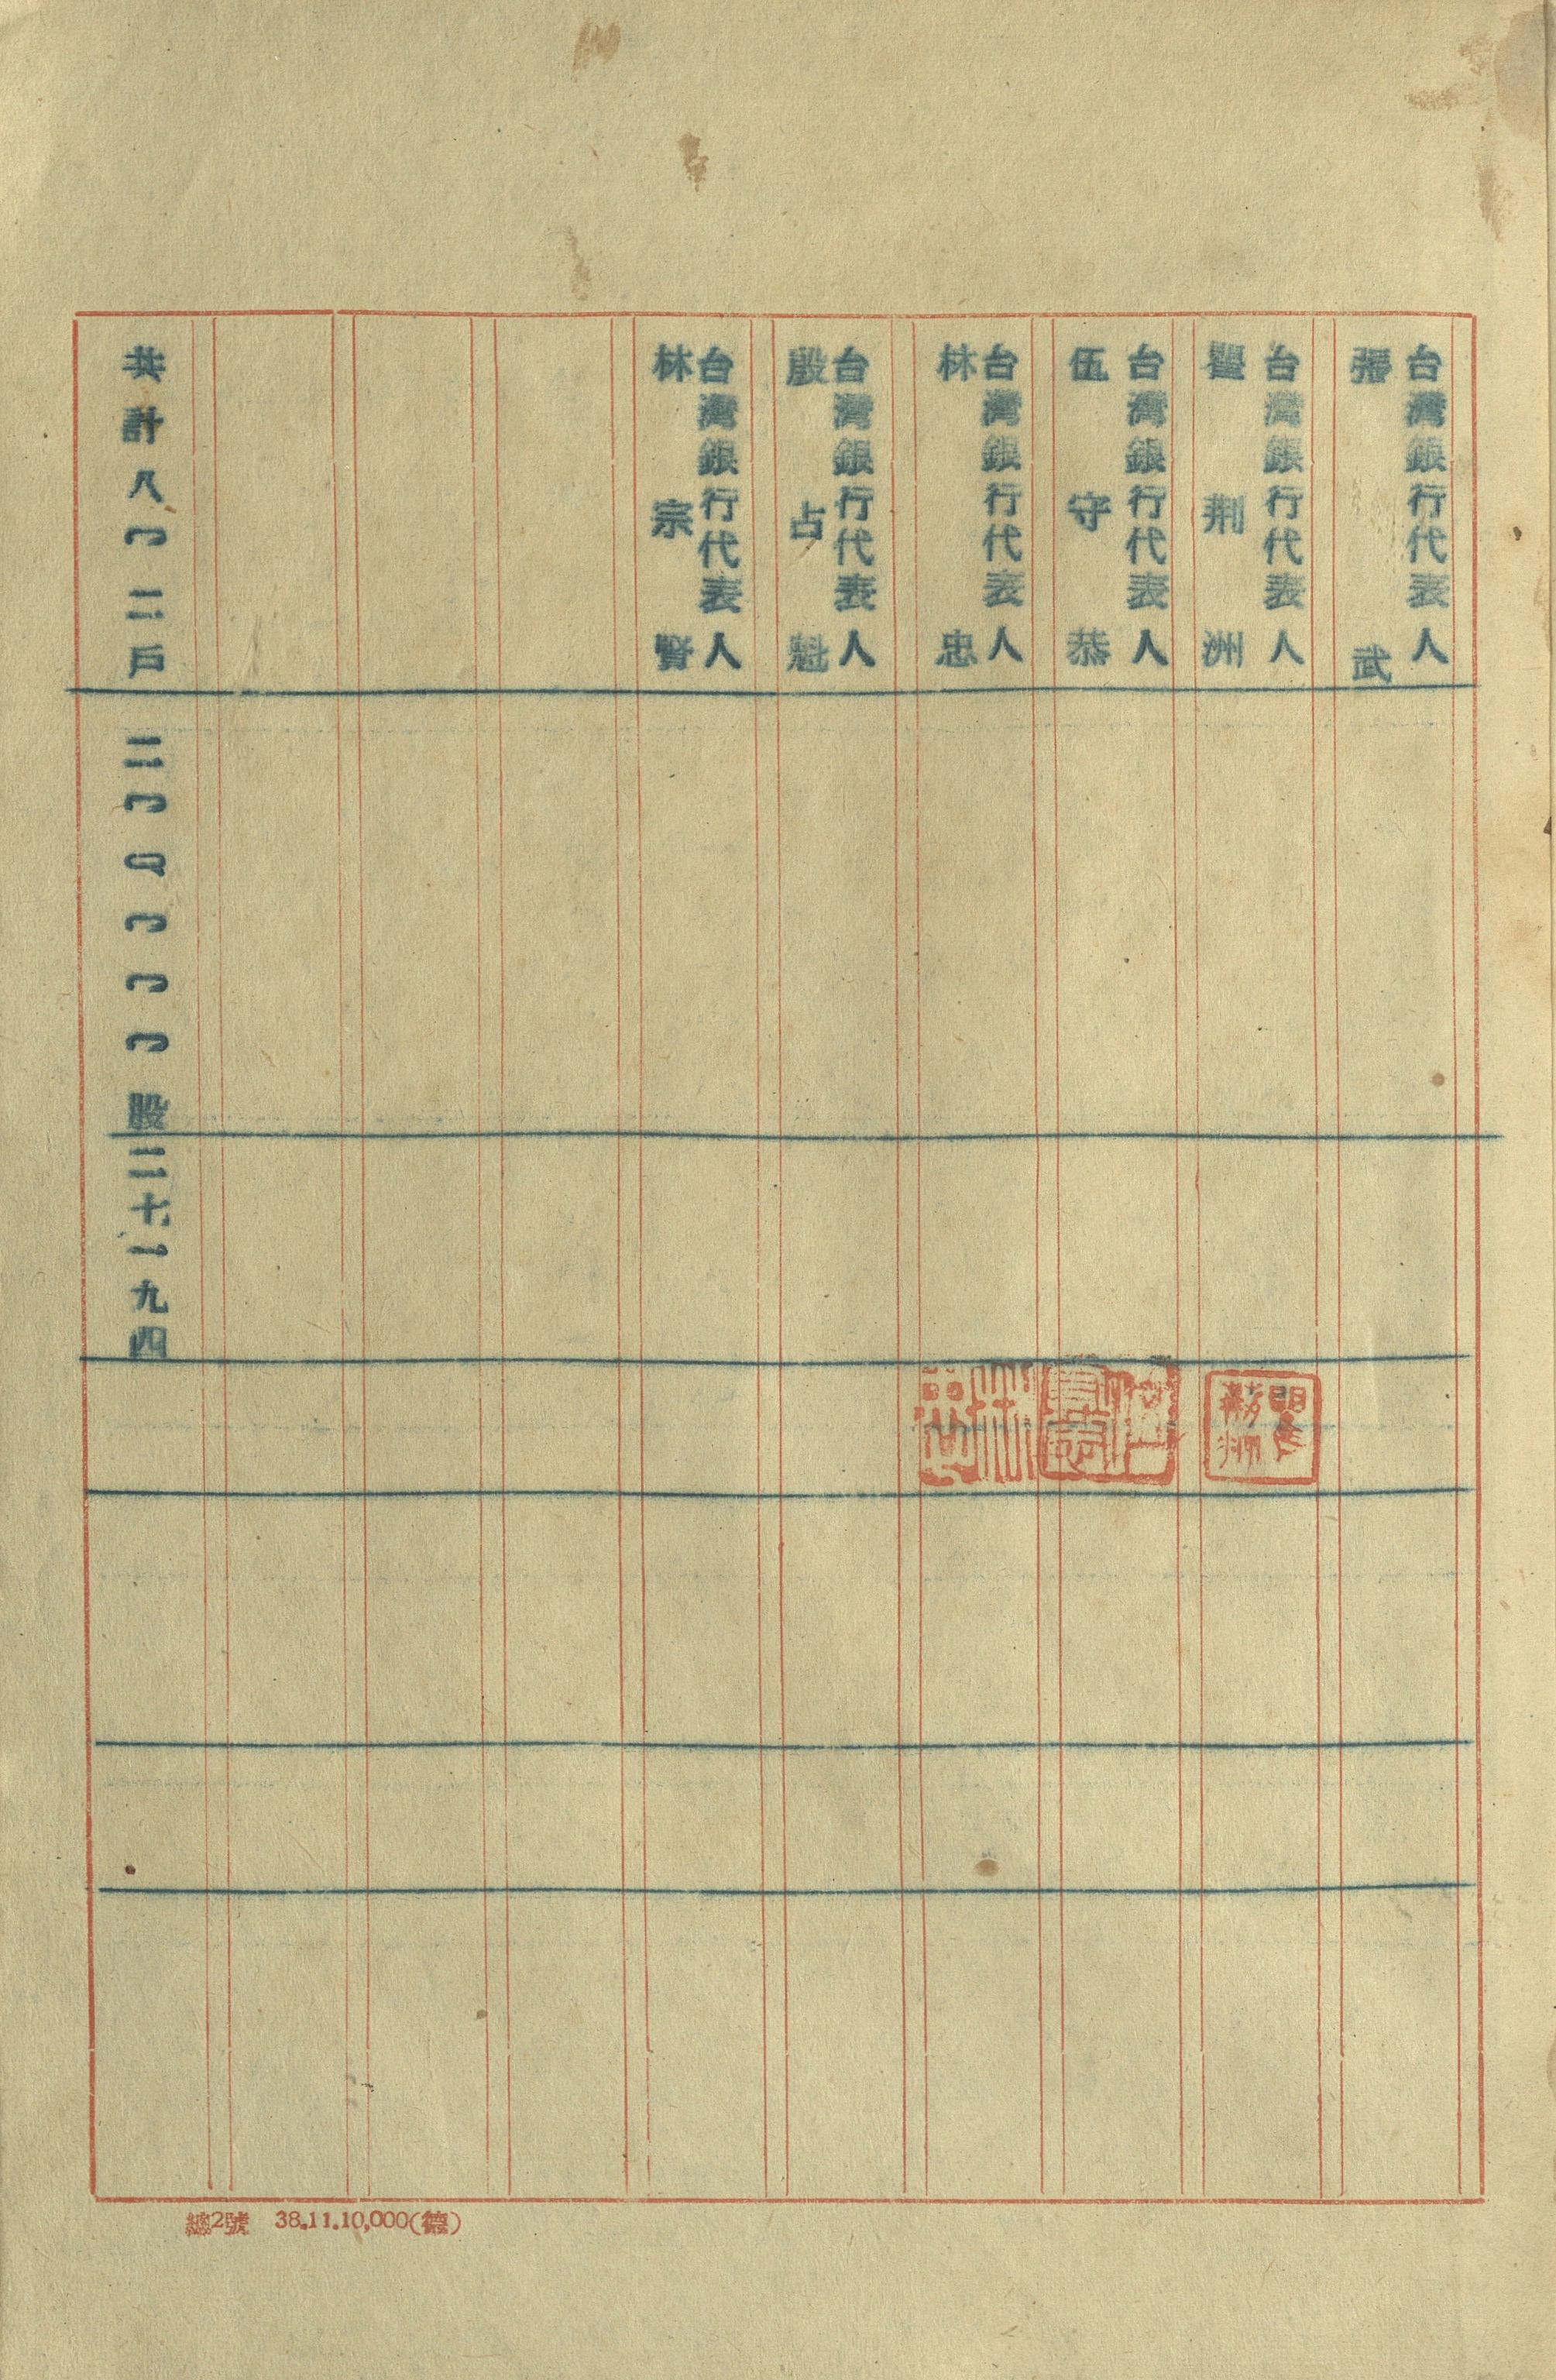 台灣銀行代表人
張武
台灣銀行代表人
瞿荆洲
台灣銀行代表人
伍守恭
台灣銀行代表人
林忠
台灣銀行代表人
殷占魁
台灣銀行代表人
林宗賢
共計八〇三戶
股
九四
瞿荆洲
總2號 38.11.10,000(德)